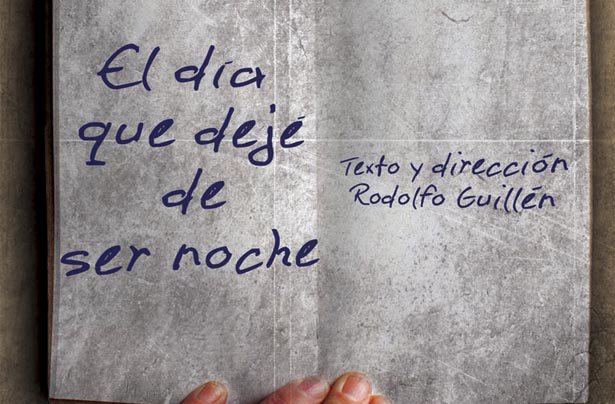 El día
que dejé
de
ser noche
Texto y dirección
Rodolfo Guillén